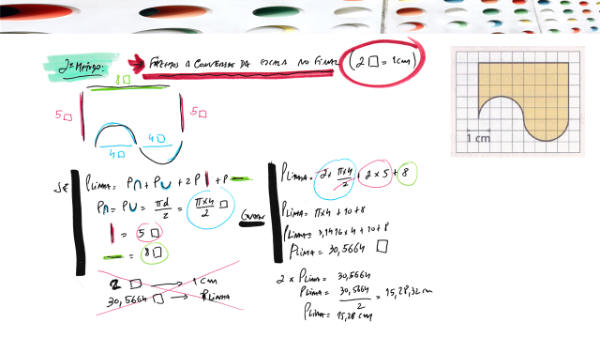 2º Método: → Fazemos a conversão da escala no final (2 □ = 1cm)
8 □
5 □
5 □
4 □
4 □
1 cm
P LINHA = P∩ + P∪ + 2P | + P —
P∩ = P∪ = πd/2 = π×4/2 □
| = 5 □
— = 8 □
2 □ → 1 cm
30,5664 □ → P LINHA
P LINHA = 2 × π×4/2 + 2 × 5 + 8
P LINHA = π×4 + 10 + 8
P LINHA = 3,1416 × 4 + 10 + 8
P LINHA = 30,5664 □
2 × P LINHA = 30,5664
P LINHA = 30,5664/2 = 15,2832 cm
P LINHA = 15,28 cm